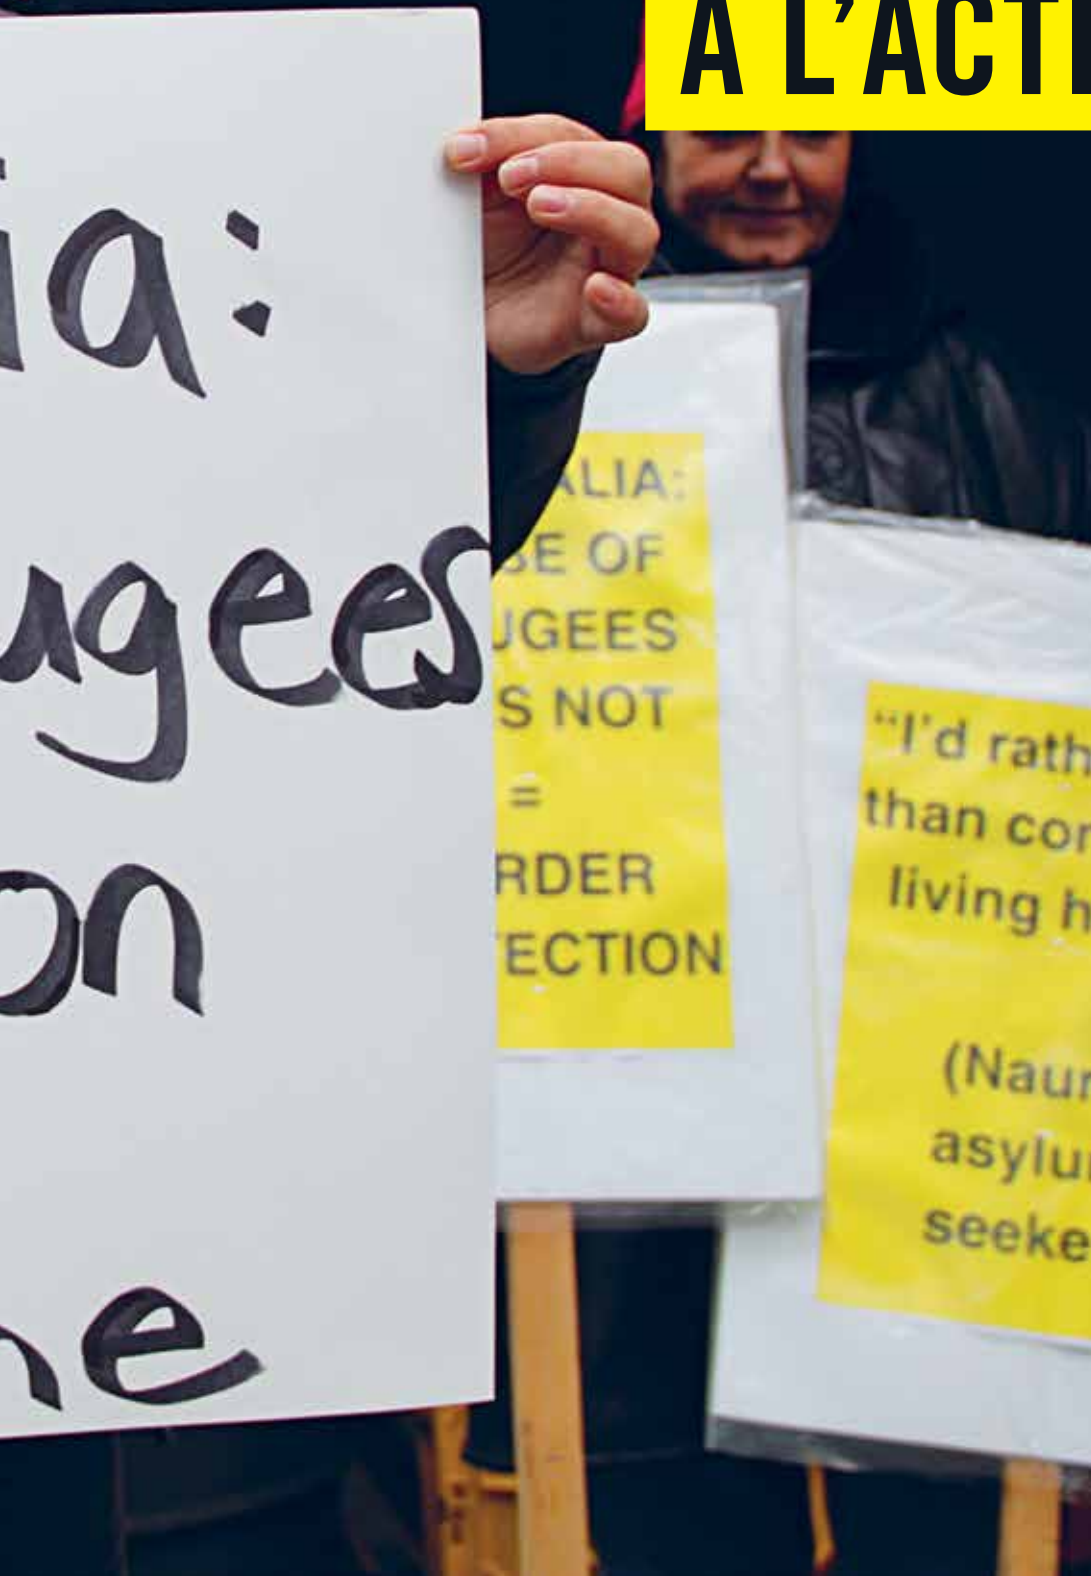 À L'ACTI
ia:
ugees
on
ne
ALIA:
SE OF
UGEES
S NOT
=
RDER
TECTION
“I'd rath
than con
living h
(Naur
asylu
seeke